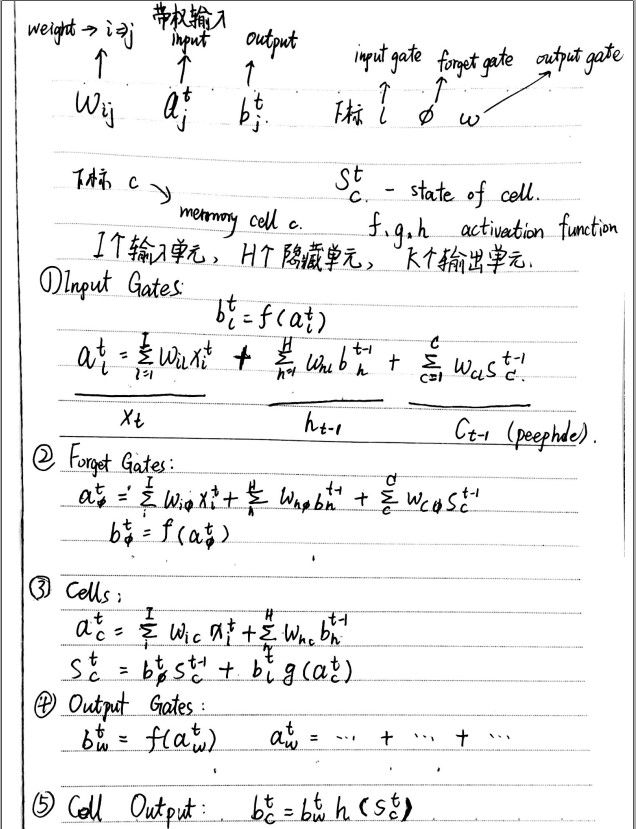 带权输入
weight → i⇒j input output
input gate forget gate output gate
w_{ij} a_j^t b_j^t 下标 ι ϕ ω
下标 c S_c^t - state of cell.
memmory cell c. f,g,h activation function
I个输入单元, H个隐藏单元, K个输出单元.
① Input Gates:
b_ι^t = f(a_ι^t)
a_ι^t = Σ_{i=1}^I w_{iι} x_i^t + Σ_{h=1}^H w_{hι} b_h^{t-1} + Σ_{c=1}^C w_{cι} s_c^{t-1}
x_t h_{t-1} C_{t-1} (peephole).
② Forget Gates:
a_ϕ^t = Σ_i^I w_{iϕ} x_i^t + Σ_h^H w_{hϕ} b_h^{t-1} + Σ_c^C w_{cϕ} s_c^{t-1}
b_ϕ^t = f(a_ϕ^t)
③ Cells:
a_c^t = Σ_i^I w_{ic} x_i^t + Σ_h^H w_{hc} b_h^{t-1}
S_c^t = b_ϕ^t S_c^{t-1} + b_ι^t g(a_c^t)
④ Output Gates:
b_w^t = f(a_w^t) a_w^t = ... + ... + ...
⑤ Cell Output: b_c^t = b_w^t h(S_c^t)